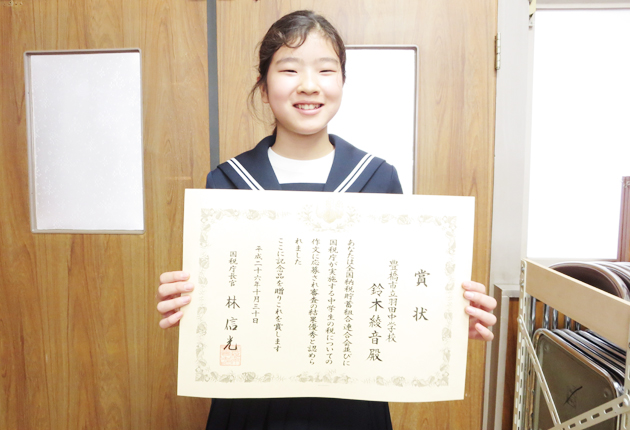 賞状
豊橋市立羽田中学校
鈴木綾音殿
あなたは全国納税貯蓄組合連合会並びに
国税庁が実施する中学生の税についての
作文に応募され審査の結果優秀と認めら
れました
ここに記念品を贈りこれを賞します
平成二十六年十月三十日
国税庁長官 林信光